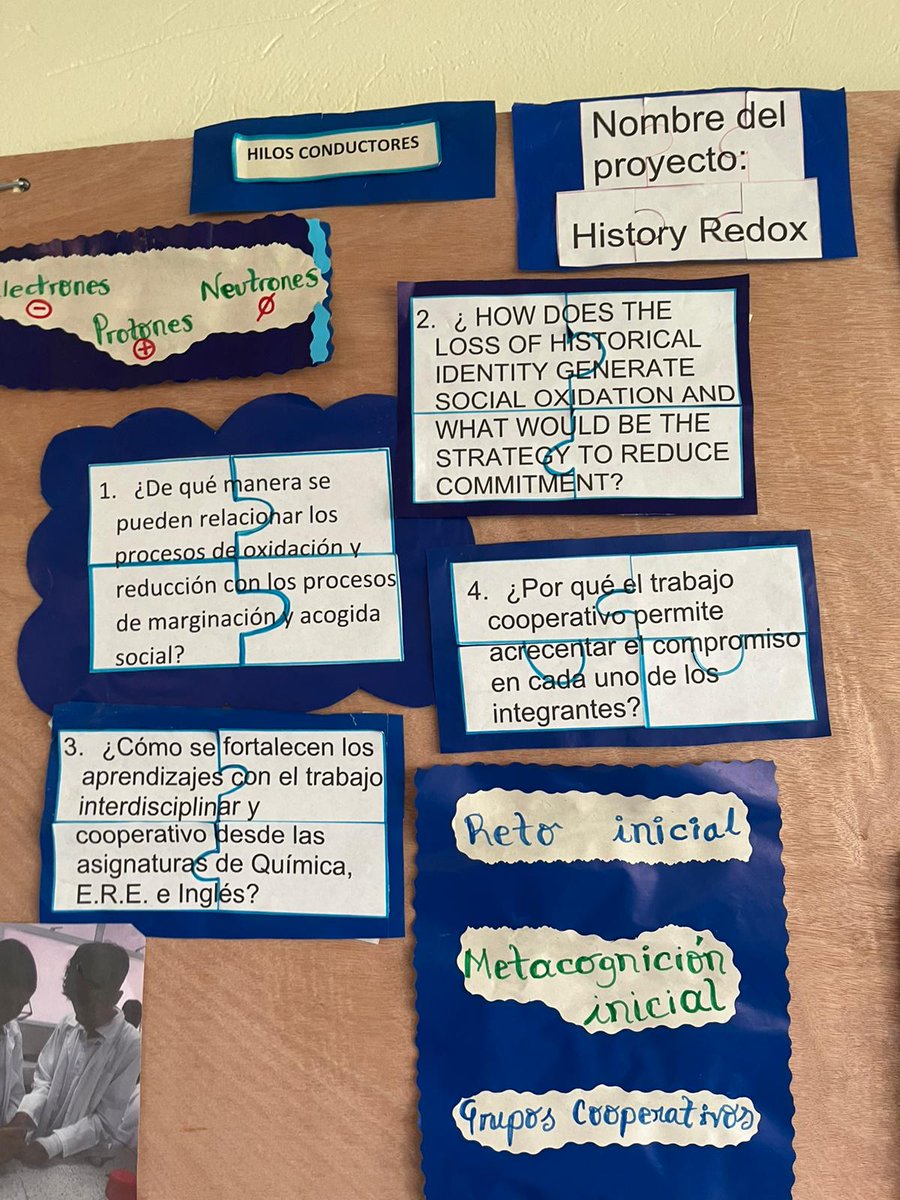 HILOS CONDUCTORES
Nombre del
proyecto:
History Redox
lectrones
Neutrones
Protones
2. ¿ HOW DOES THE
LOSS OF HISTORICAL
IDENTITY GENERATE
SOCIAL OXIDATION AND
WHAT WOULD BE THE
STRATEGY TO REDUCE
COMMITMENT?
1. ¿De qué manera se
pueden relacionar los
procesos de oxidación y
reducción con los procesos
de marginación y acogida
social?
4. ¿Por qué el trabajo
cooperativo permite
acrecentar el compromiso
en cada uno de los
integrantes?
3. ¿Cómo se fortalecen los
aprendizajes con el trabajo
interdisciplinar y
cooperativo desde las
asignaturas de Química,
E.R.E. e Inglés?
Reto inicial
Metacognición
inicial
Grupos Cooperativos